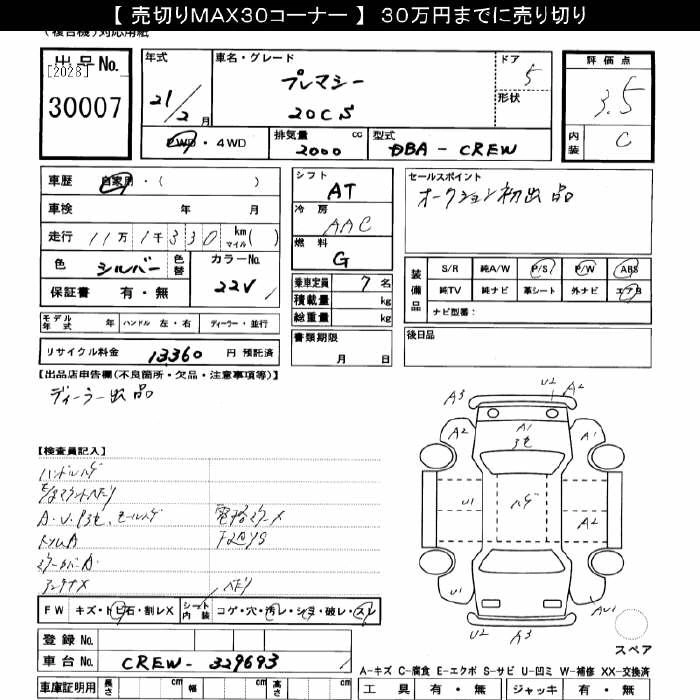 【 売切りMAX30コーナー 】 30万円までに売り切り
(複合機)対応用紙
出品No.
[2028]
30007
年式
21/2月
車名・グレード
プレマシー
20CS
ドア
5
形状
評価点
3.5
内装
C
2WD・4WD
排気量 cc
2000
型式
DBA - CREW
車歴 自家用・( )
車検 年 月
走行 11万1千330 km マイル( )
色 シルバー 色替
カラーNo.
22V
保証書 有・無
シフト
AT
冷房
AAC
燃料
G
セールスポイント
オークション初出品
乗車定員 7名
積載量 kg
総重量 kg
装備品
S/R 純A/W P/S P/W ABS
純TV 純ナビ 革シート 外ナビ エアB
ナビ型番:
モデル年式 年 ハンドル 左・右 ディーラー・並行
リサイクル料金 13360 円 預託済
書類期限
月 日
後日品
【出品店申告欄(不良箇所・欠品・注意事項等)】
ディーラー出品
【検査員記入】
ハンドルハゲ
A3 U2 A2
A2 A1 A1
U1 ハゲ A2
U1 AU1
U2 A3
FW キズ・トビ石・割レX シート内装 コゲ・穴・汚レ・シミ・破レ・スレ
登録No.
車台No. CREW - 329693
スペア
車庫証明用 長さ cm 幅 cm 高さ cm
A-キズ C-腐食 E-エクボ S-サビ U-凹ミ W-補修 XX-交換済
工具 有・無 ジャッキ 有・無